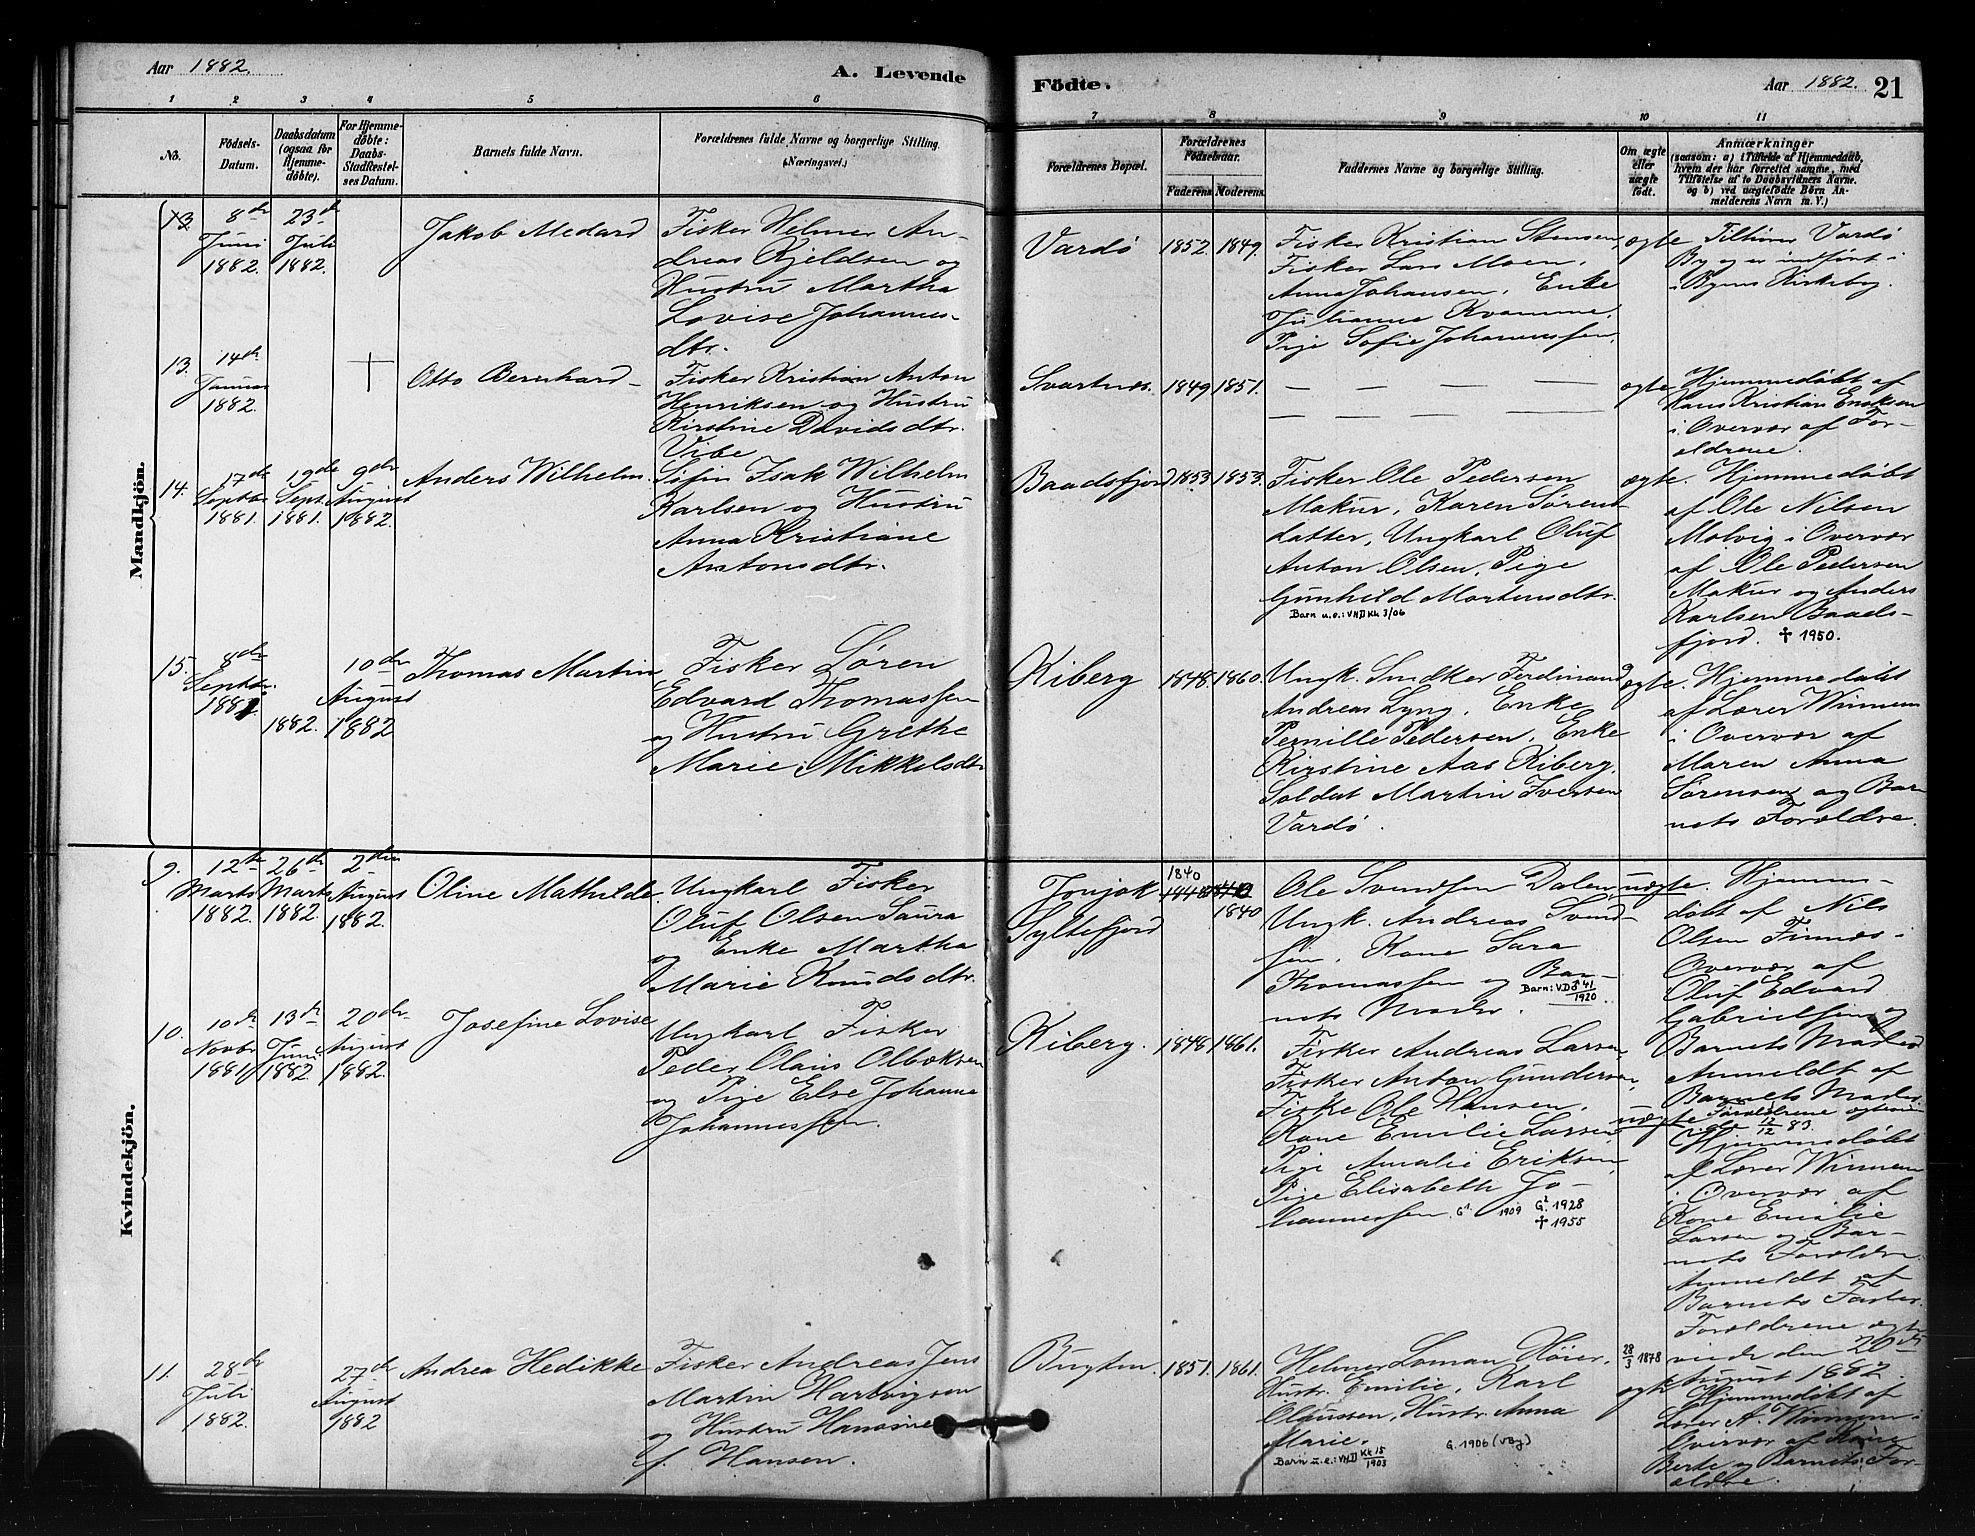 Aar 1882.
A. Levende
Födte.
Aar 1882.
21
1 2 3 4 5 6
7 8 9 10 11
No.
Födsels-
Datum.
Daabsdatum
(ogsaa for
Hjemme-
döbte).
For Hjemme-
döbte:
Daabs-
Stadfæstel-
ses Datum.
Barnets fulde Navn.
Forældrenes fulde Navne og borgerlige Stilling.
(Næringsvei.)
Forældrenes Bopæl.
Forældrenes
Födselsaar.
Faderens. Moderens.
Faddernes Navne og borgerlige Stilling.
Om ægte
eller
uægte
født.
Anmærkninger
(saasom: a) i Tilfælde af Hjemmedaab,
hvem der har forrettet samme, med
Tilføielse af to Daabsvidners Navne.
og b) ved uægtefödte Börn An-
melderens Navn m. V.)
Mandkjön.
13.
8de
Juni
1882.
23de
Juli
1882.
Jakob Medard
Fisker Helmer An-
dreas Kjeldsen og
Hustru Martha
Lovise Johannes-
dtr.
Vardø
1852. 1849.
Fisker Kristian Stensen,
Fisker Lars Moen,
Anna Johansen, Enke
Julianna Kvamme,
Pige Sofie Johannessen.
ægte
Tilhører Vardø
By og er indført i
Byens Kirkebog.
13.
14de
Januar
1882.
Otto Bernhard
Fisker Kristian Anton
Henriksen og Hustru
Kirstine Davidsdtr.
Vibe
Svartnes.
1849 1851.
ægte
Hjemmedøbt af
Hans Kristian Eriksen
i Overvær af For-
ældrene.
14.
17de
Septbr
1881.
19de
Sept.
1881.
9de
August
1882.
Anders Wilhelm.
Søfin Isak Wilhelm
Karlsen og Hustru
Anna Kristiane
Antonsdtr.
Baadsfjord
1853 1853.
Fisker Ole Pedersen
Makur, Karen Sørens-
datter, Ungkarl Oluf
Anton Olsen, Pige
Gunhild Mortensdtr.
Barn u.e.: VHD Kk 3/06
ægte.
Hjemmedøbt
af Ole Nilsen
Molvig i Overvær
af Ole Pedersen
Makur og Anders
Karlsen Baads-
fjord. ✝ 1950.
15.
8de
Septbr.
1881.
1882.
10de
August
1882
Thomas Martin
Fisker Søren
Edvard Thomassen
og Hustru Grethe
Marie Mikkelsdtr
Kiberg
1848. 1860.
Ungk. Snedker Ferdinand
Andreas Lyng, Enke
Pernille Pedersen, Enke
Kirstine Aas Kiberg,
Soldat Martin Iversen
Vardø.
ægte.
Hjemmedøbt
af Lærer Winnem
i Overvær af
Maren Anna
Sørensen og Bar-
nets Forældre.
Kvindekjön.
9.
12te
Marts
1882.
26de
Marts
1882.
2den
August
1882.
Oline Mathilde.
Ungkarl Fisker
Oluf Olsen Saura
og Enke Martha
Marie Knudsdtr.
Jonjok
Syltefjord
1840
1848
1840
Ole Svendsen Dalen,
Ungk. Andreas Svend-
sen, Kone Sara
Thomassen og Bar-
nets Moder.
Barn: VD ♂ 41/1920
uægte.
Hjemme-
døbt af Nils
Olsen Finnæs i
Overvær af
Oluf Edvard
Gabrielsen og
Barnets Moder.
Anmeldt af
Barnets Moder.
Forældrene ægtevi-
et 12/12 83.
10.
10de
Novbr
1881
13de
Juni
1882.
20de
August
1882.
Josefine Lovise
Ungkarl Fisker
Peder Olaus Olboksen
og Pige Else Johanne
Johannessen.
Kiberg.
1848. 1861.
Fisker Andreas Larsen,
Fisker Anton Gundersen,
Fisker Ole Hansen,
Kone Emilie Larsen
Pige Amalie Eriksen,
Pige Elisabeth Jo-
hannessen. G1. 1909 G2. 1928
✝ 1955
uægte
Hjemmedøbt
af Lærer Winnem
i Overvær af
Kone Emalie
Larsen og Bar-
nets Forældre.
Anmeldt af
Barnets Fader.
Forældrene ægte
viede den 20de
August 1882.
11.
28de
Juli
1882.
27de
August
1882
Andrea Hedikke
Fisker Andreas Jens
Martin Hartvigsen
og Hustru Hansine
f. Hansen.
Bugten.
1851. 1861.
Helmer Loman Høier,
Hustr. Emilie, Karl
Olaussen, Hustr. Anna
Marie.
Barn u.e.: VHD Kk 15/1903
G. 1906 (VBy)
28/3 1878
ægte
Hjemmedøbt af
Lærer A. Winnem i
Overvær af Kone
Berte og Barnets For-
ældre.